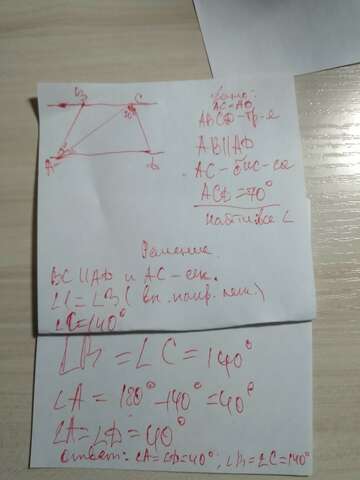 B C
A D
Дано:
AC=AD
ABCD-тр-я
AB||AD
AC-бис-са
ACD=70°
Найти все ∠
Решение
BC||AD и AC-сек.
∠C=140°
∠B=∠C=140°
∠A=180°-140°=40°
∠A=∠D=40°
Ответ: ∠A=∠D=40°; ∠B=∠C=140°